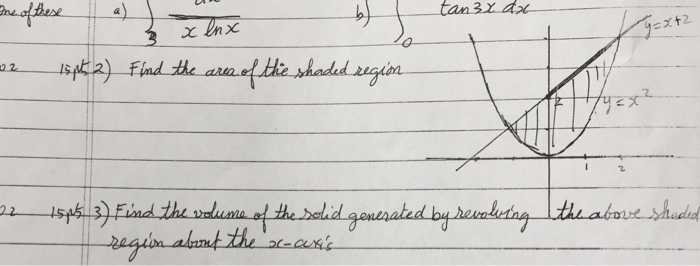 One of these a) ∫ dx / x ln x b) ∫ tan 3x dx
3 0
y=x+2
15pts 2) Find the area of the shaded region
2 y=x²
1 2
15pts 3) Find the volume of the solid generated by revolving the above shaded
region about the x-axis